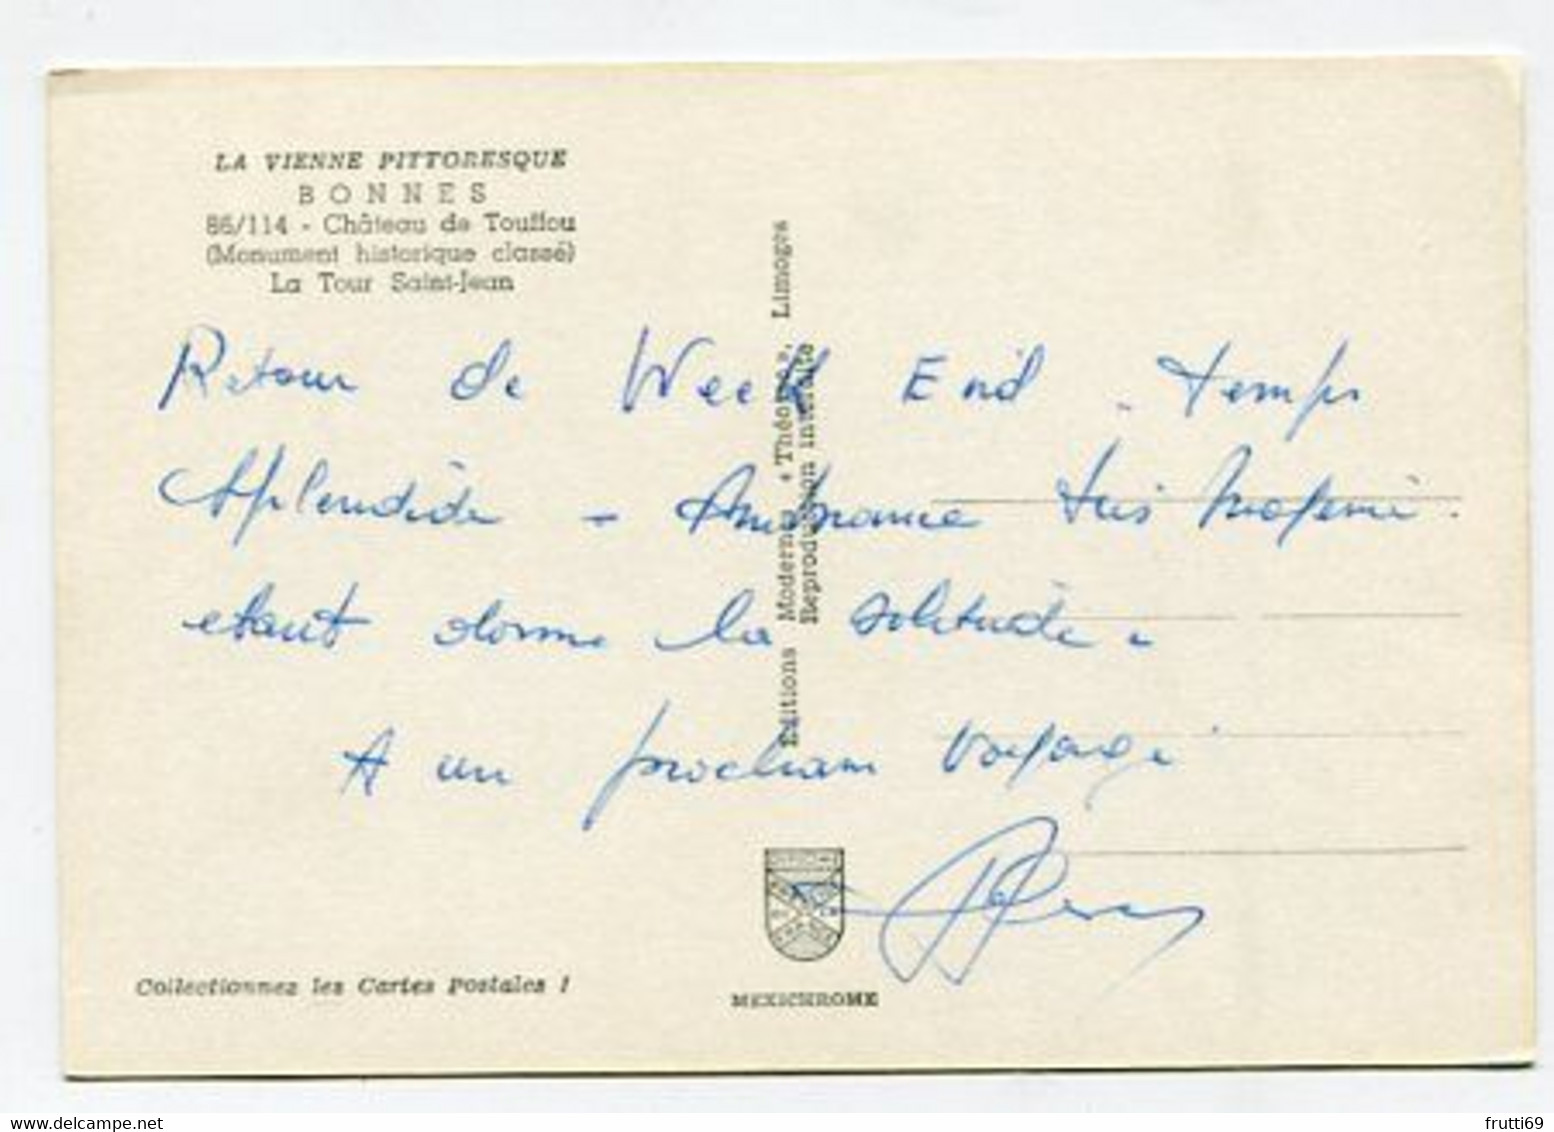 LA VIENNE PITTORESQUE
BONNES
86/114 - Château de Touffou
(Monument historique classé)
La Tour Saint-Jean
Retour de Week End - temps
splendide - Ambiance très
etant donne la solitude.
A un prochain voyage
Editions Modernes « Théojac », Limoges
Reproduction interdite
Collectionnez les Cartes Postales !
MEXICHROME
frutti69